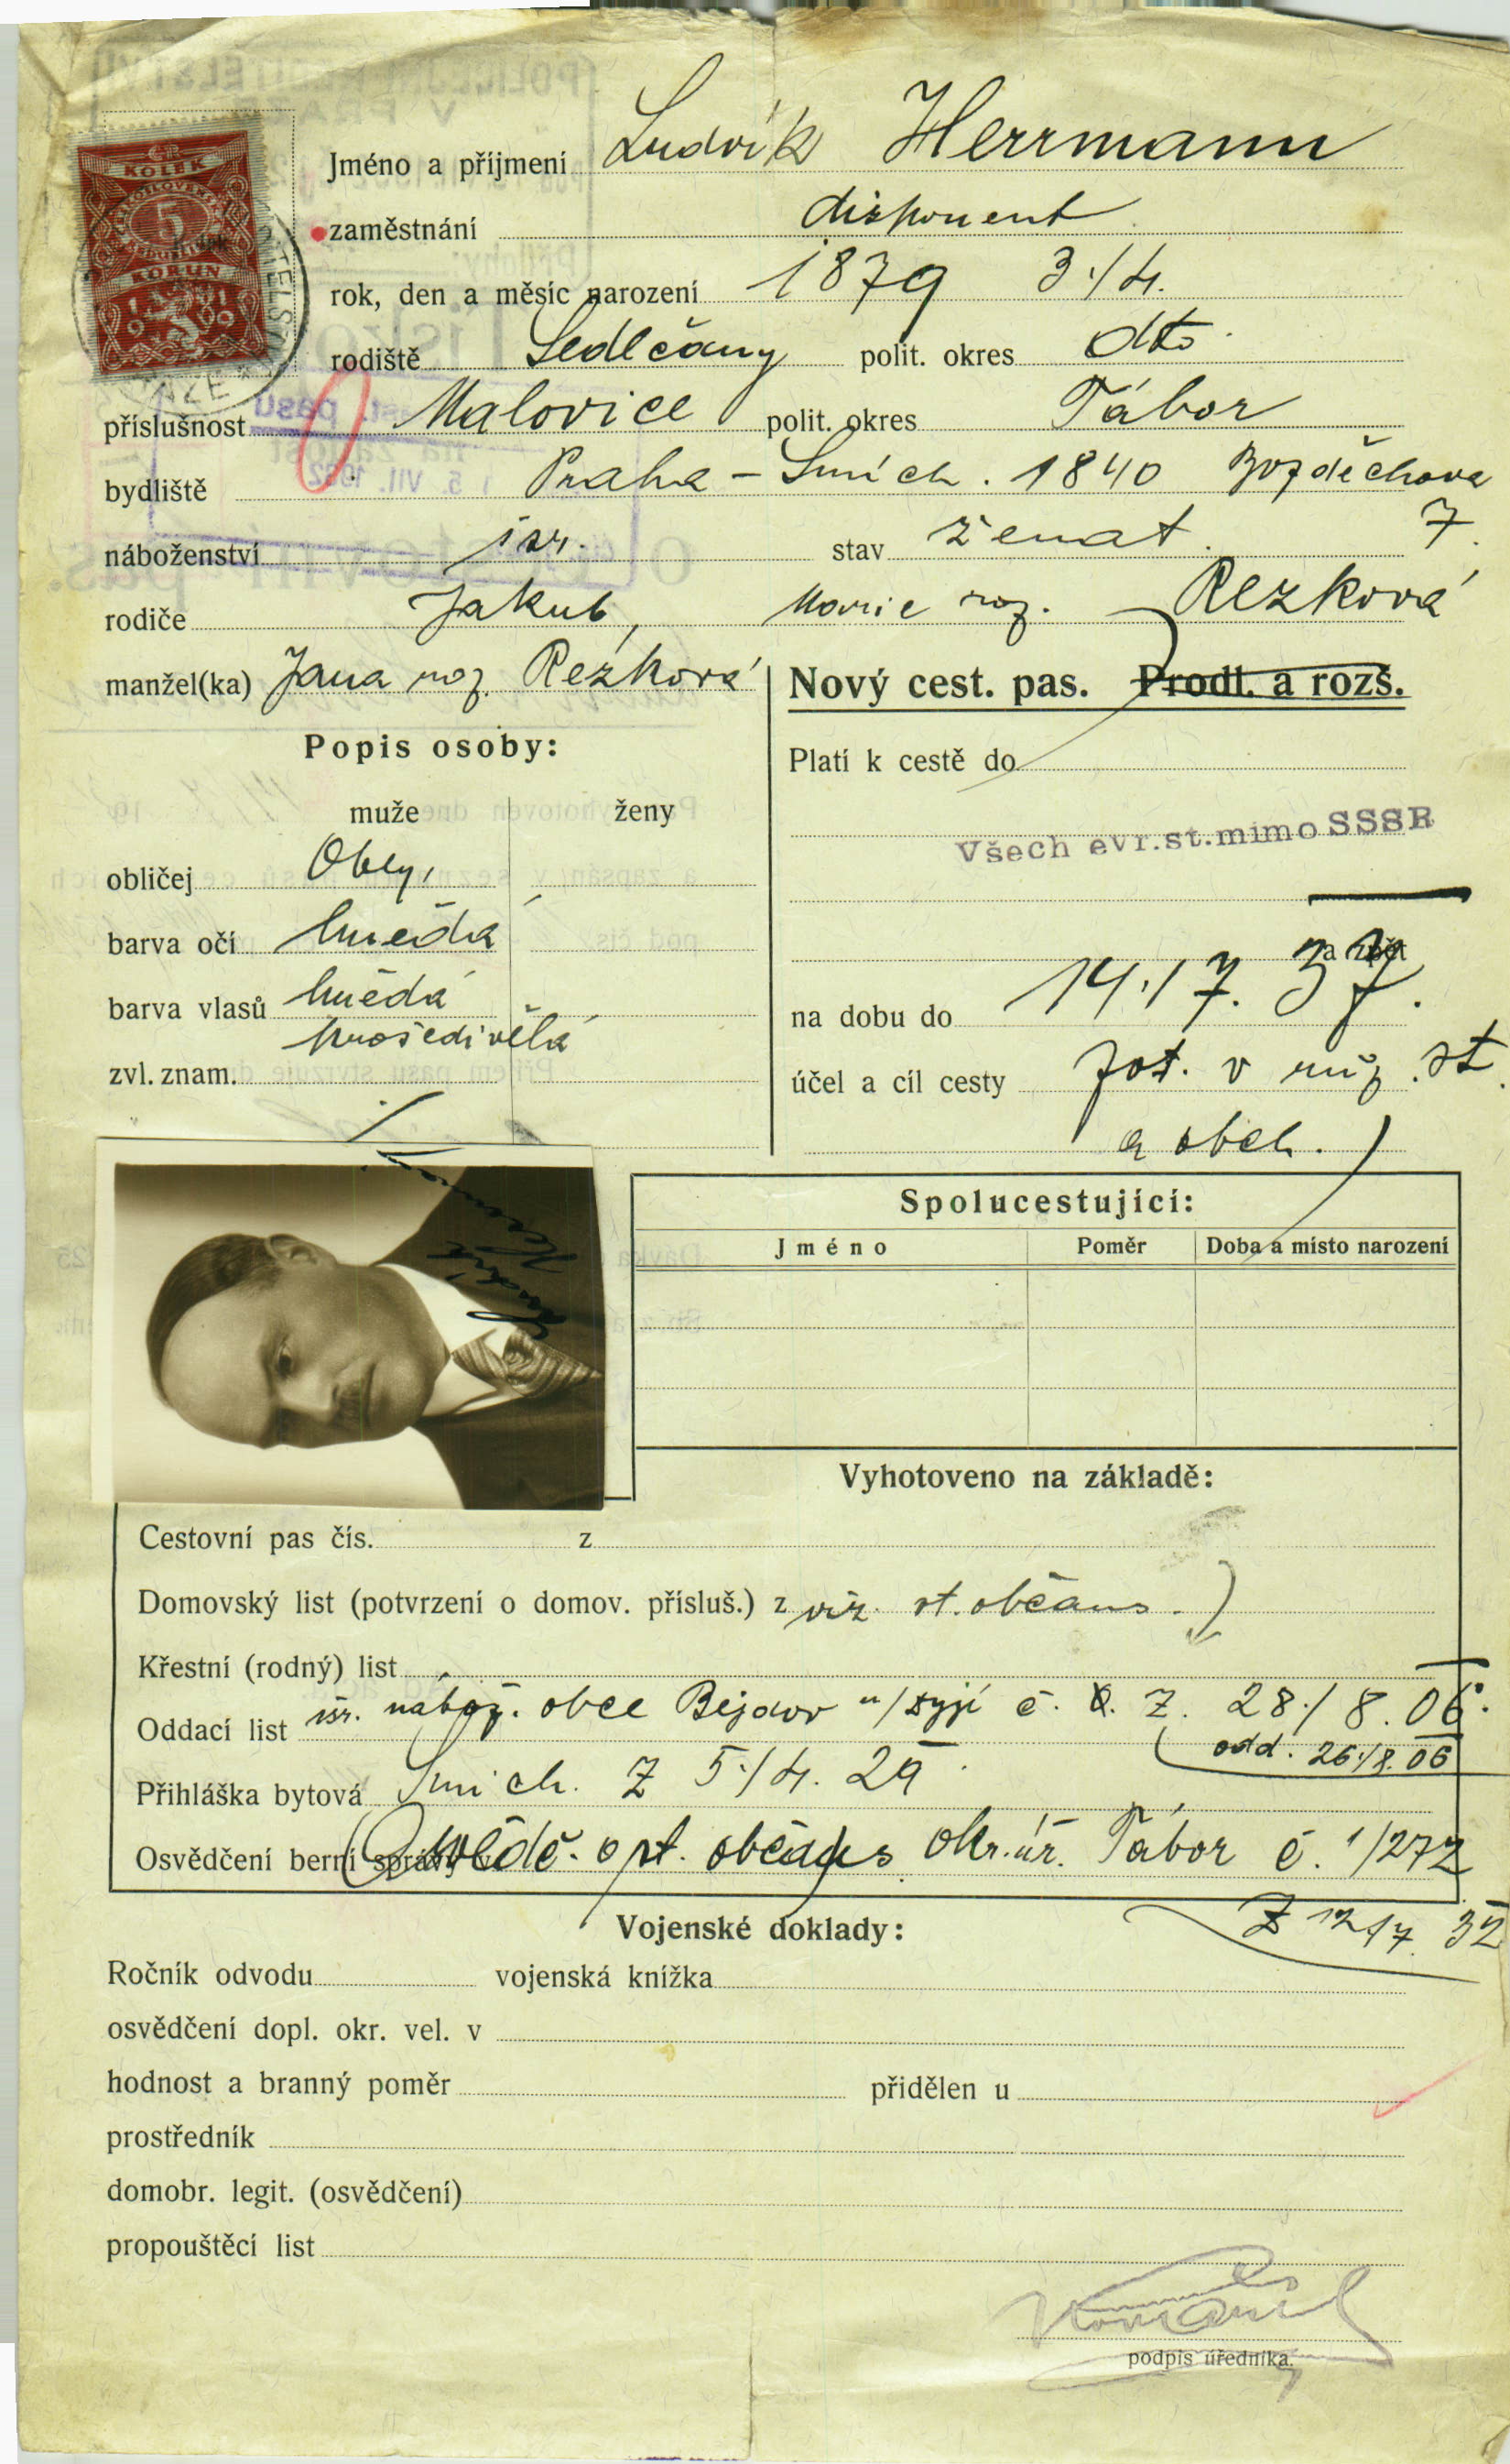 KOLEK
5
KORUN
1919
Jméno a příjmení Ludvík Herrmann
zaměstnání disponent
rok, den a měsíc narození 1879 3./4.
rodiště Sedlčany polit. okres dto.
příslušnost Malovice polit. okres Tábor
bydliště Praha - Smích. 1840 Bozděchova
7.
náboženství isr. stav ženat.
rodiče Jakub, Marie roz. Rezková
manžel(ka) Jana roz. Rezková
Nový cest. pas. Prodl. a rozš.
Popis osoby:
muže ženy
obličej Oblý,
barva očí hnědá
barva vlasů hnědá
prošedivělá
zvl. znam.
Platí k cestě do
Všech evr.st.mimo SSSR
na dobu do 14./7. 37.
účel a cíl cesty pot. v růz. st.
a obch.
Ludvík Herrmann
Spolucestující:
Jméno Poměr Doba a místo narození
Vyhotoveno na základě:
Cestovní pas čís. z
Domovský list (potvrzení o domov. přísluš.) z viz. st. občans.
Křestní (rodný) list
Oddací list isr. nábož. obce č. 8. z. 28./8. 06.
odd. 26./8. 06
Přihláška bytová Smích. z 5./4. 29.
Osvědčení berní správy osvědč. o st. občans. Okr. úř. Tábor č. 1/272
z 12./7. 32
Vojenské doklady:
Ročník odvodu vojenská knížka
osvědčení dopl. okr. vel. v
hodnost a branný poměr přidělen u
prostředník
domobr. legit. (osvědčení)
propouštěcí list
podpis úředníka.